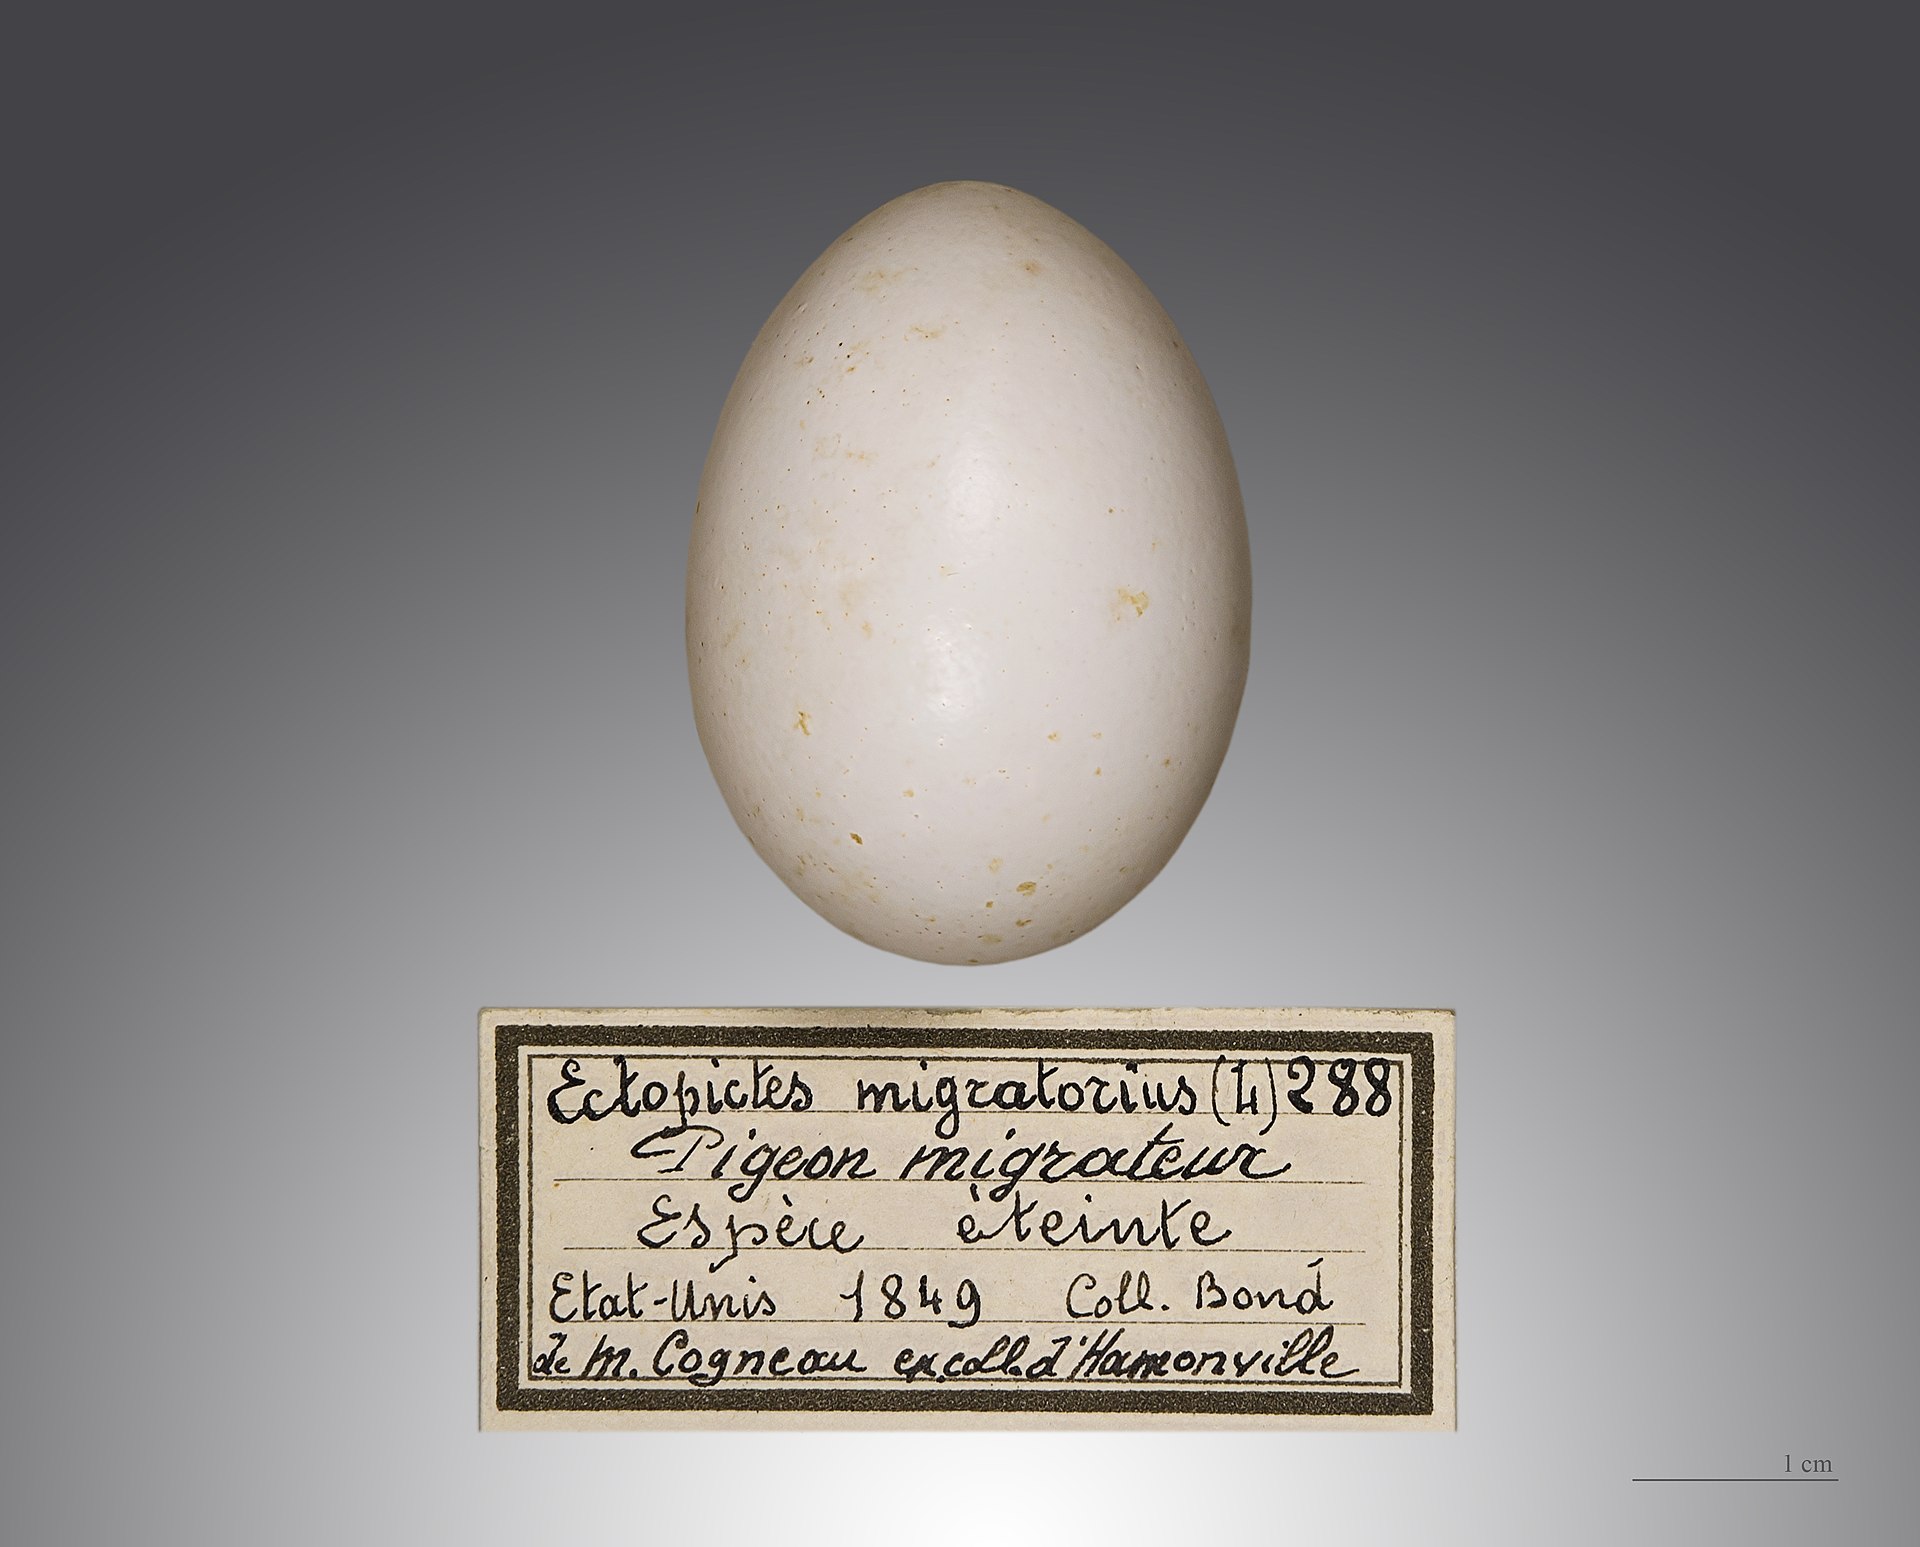 Ectopictes migratorius (L) 288
Pigeon migrateur
Espèce èteinte
Etat-Unis 1849 Coll. Bond
de M. Cogneau ex coll. d'Hamonville
1 cm